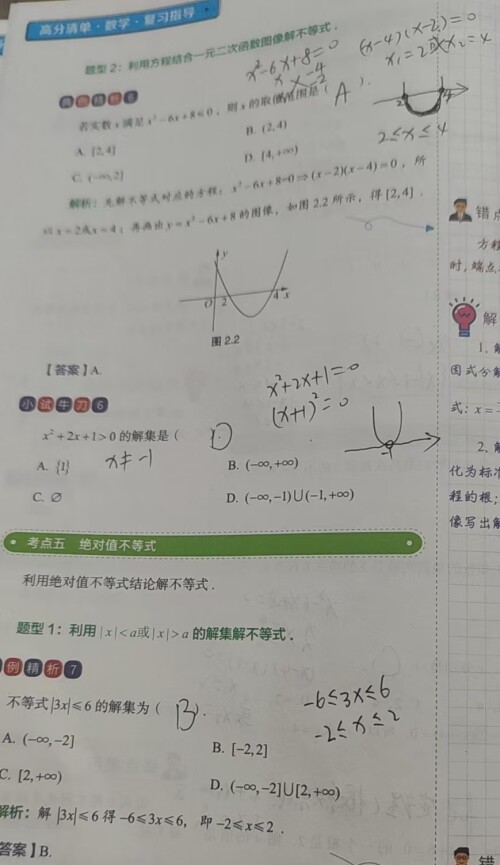 高分清单·数学·复习指导
题型2：利用方程结合一元二次函数图像解不等式.
x²-6x+8=0
x -4
x -2
(x-4)(x-2)=0
x₁=2或x₂=4
典例精析6
若实数x满足x²-6x+8≤0，则x的取值范围是( A ).
A. [2,4]
B. (2,4)
C. (-∞,2]
D. [4,+∞)
2 4
2≤x≤4
解析：先解不等式对应的方程：x²-6x+8=0⇒(x-2)(x-4)=0，所
以x=2或x=4；再画出y=x²-6x+8的图像，如图2.2所示，得[2,4].
y
O 2 4 x
图2.2
【答案】A.
小试牛刀6
x²+2x+1=0
(x+1)²=0
x²+2x+1>0的解集是( D
A. {1}
x≠-1
B. (-∞,+∞)
C. ∅
D. (-∞,-1)∪(-1,+∞)
-1
考点五 绝对值不等式
利用绝对值不等式结论解不等式.
题型1：利用|x|<a或|x|>a的解集解不等式.
例精析7
不等式|3x|≤6的解集为( B ).
-6≤3x≤6
-2≤x≤2
A. (-∞,-2]
B. [-2,2]
C. [2,+∞)
D. (-∞,-2]∪[2,+∞)
解析：解|3x|≤6得-6≤3x≤6，即-2≤x≤2.
答案】B.
错
方程
时，端点
解
1. 解
因式分解
式：x=
2. 解
化为标准
程的根；
像写出解
错